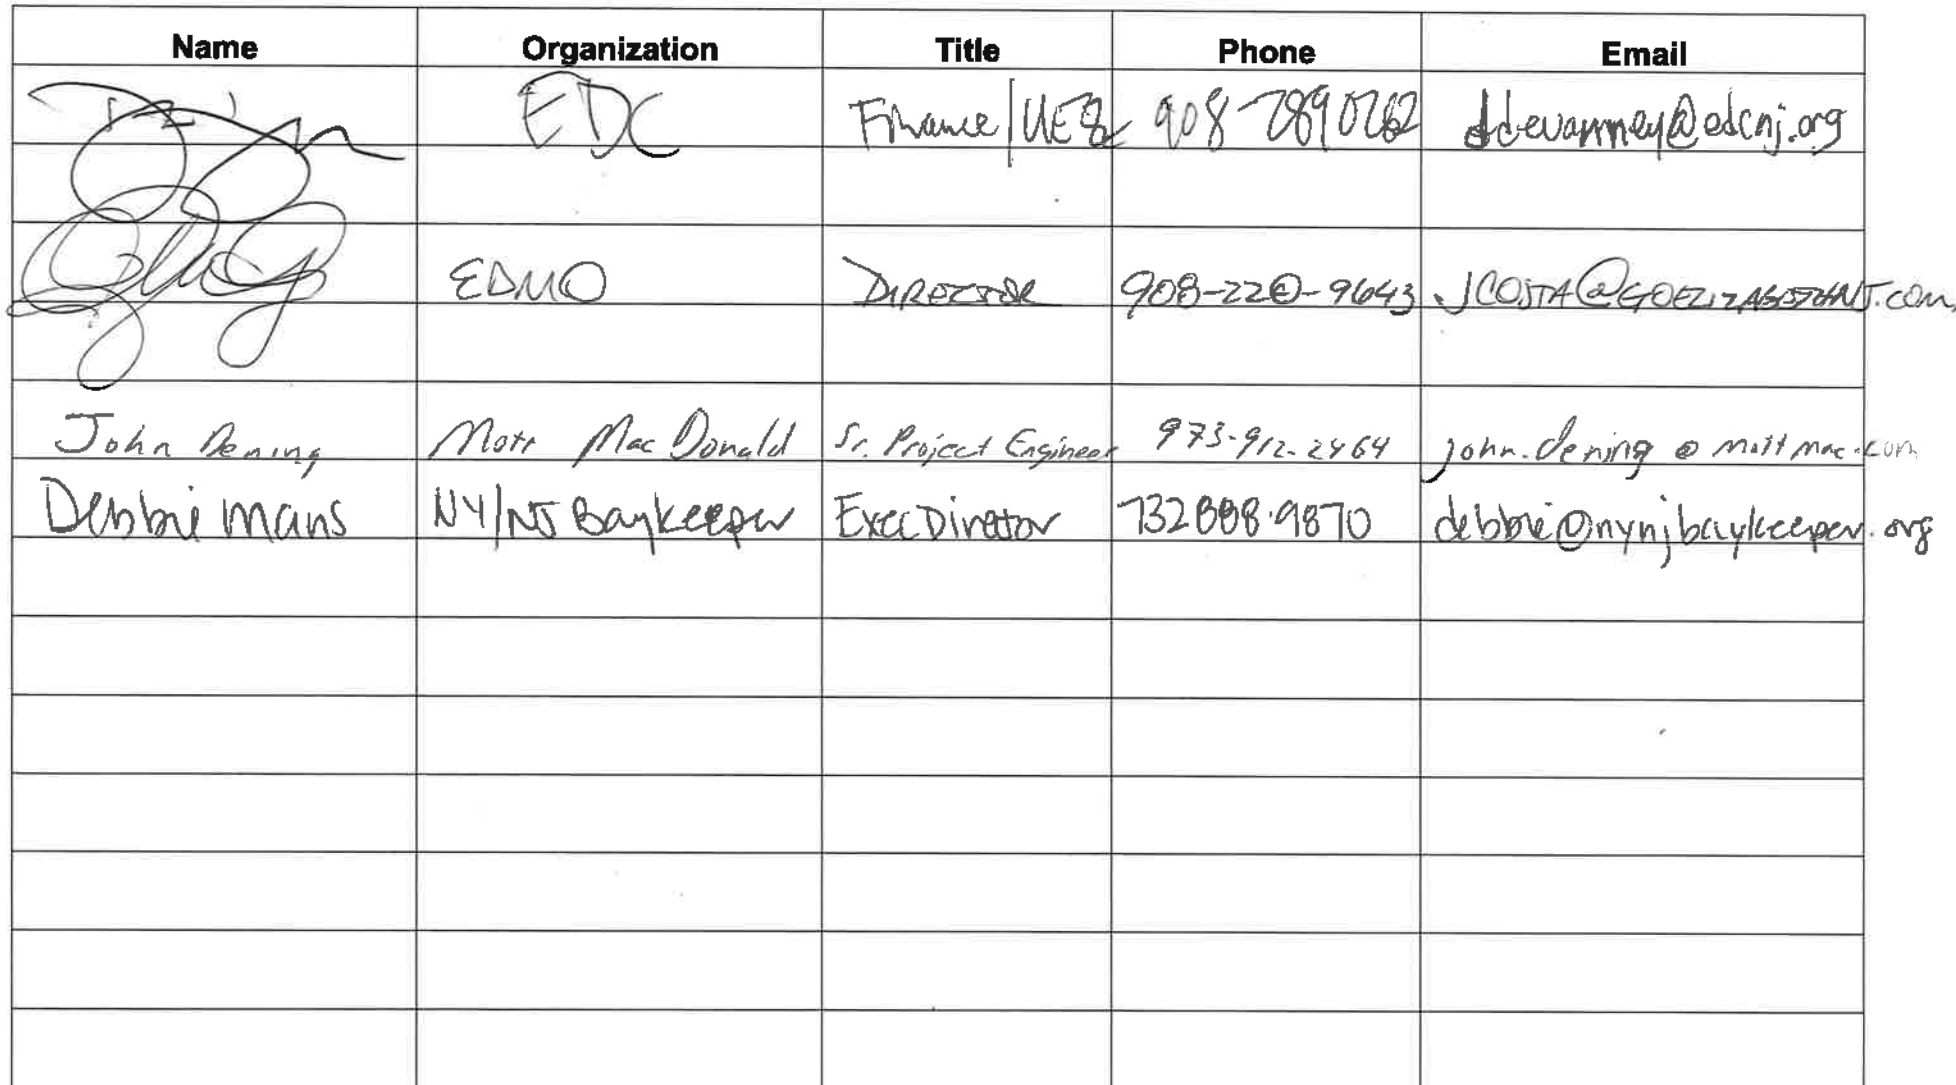 Name Organization Title Phone Email
EDC Finance/UEZ 908-2890262 ddevanney@edcnj.org
EDMO DIRECTOR 908-220-9643 JCOSTA@GOELIZABETHNJ.com
John Dening Mott MacDonald Sr. Project Engineer 973-912-2464 john.dening@mottmac.com
Debbie Mans NY/NJ Baykeeper Exec Director 732 888.9870 debbie@nynjbaykeeper.org